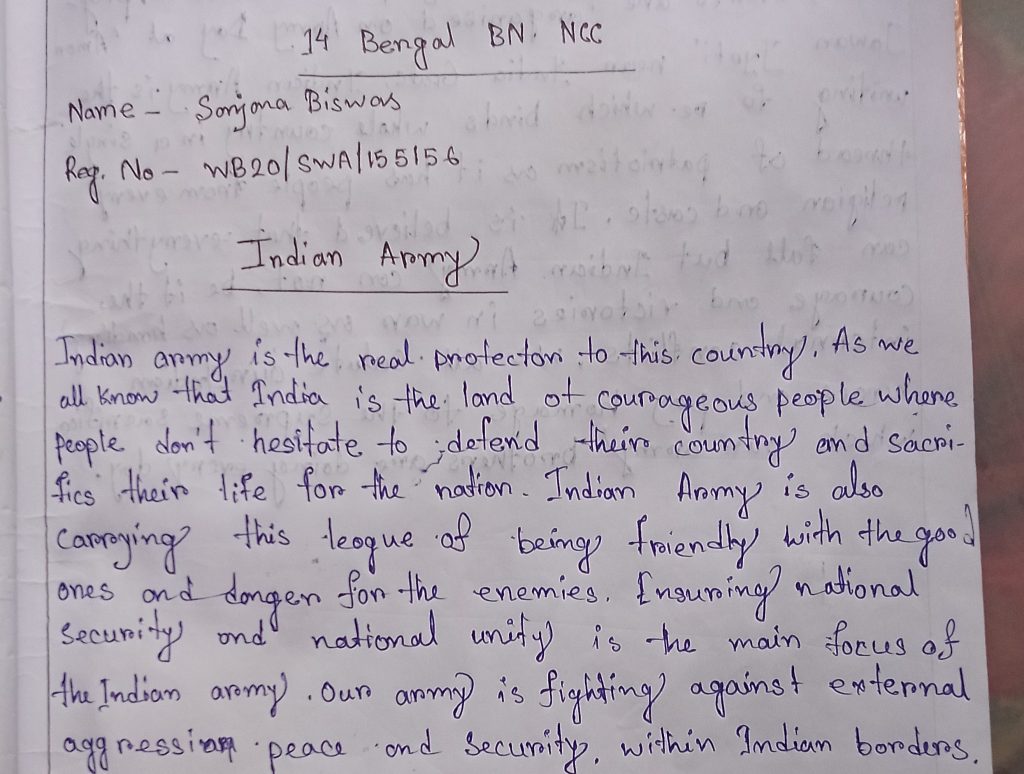 14 Bengal BN. NCC
Name - Sonjana Biswas
Reg. No - WB20/SWA/155156
Indian Army
Indian army is the real protector to this country. As we
all know that India is the land of courageous people where
people don't hesitate to defend their country and sacri-
fics their life for the nation. Indian Army is also
carrying this league of being friendly with the good
ones and danger for the enemies. Ensuring national
security and national unity is the main focus of
the Indian army. Our army is fighting against external
aggression peace and security, within Indian borders.